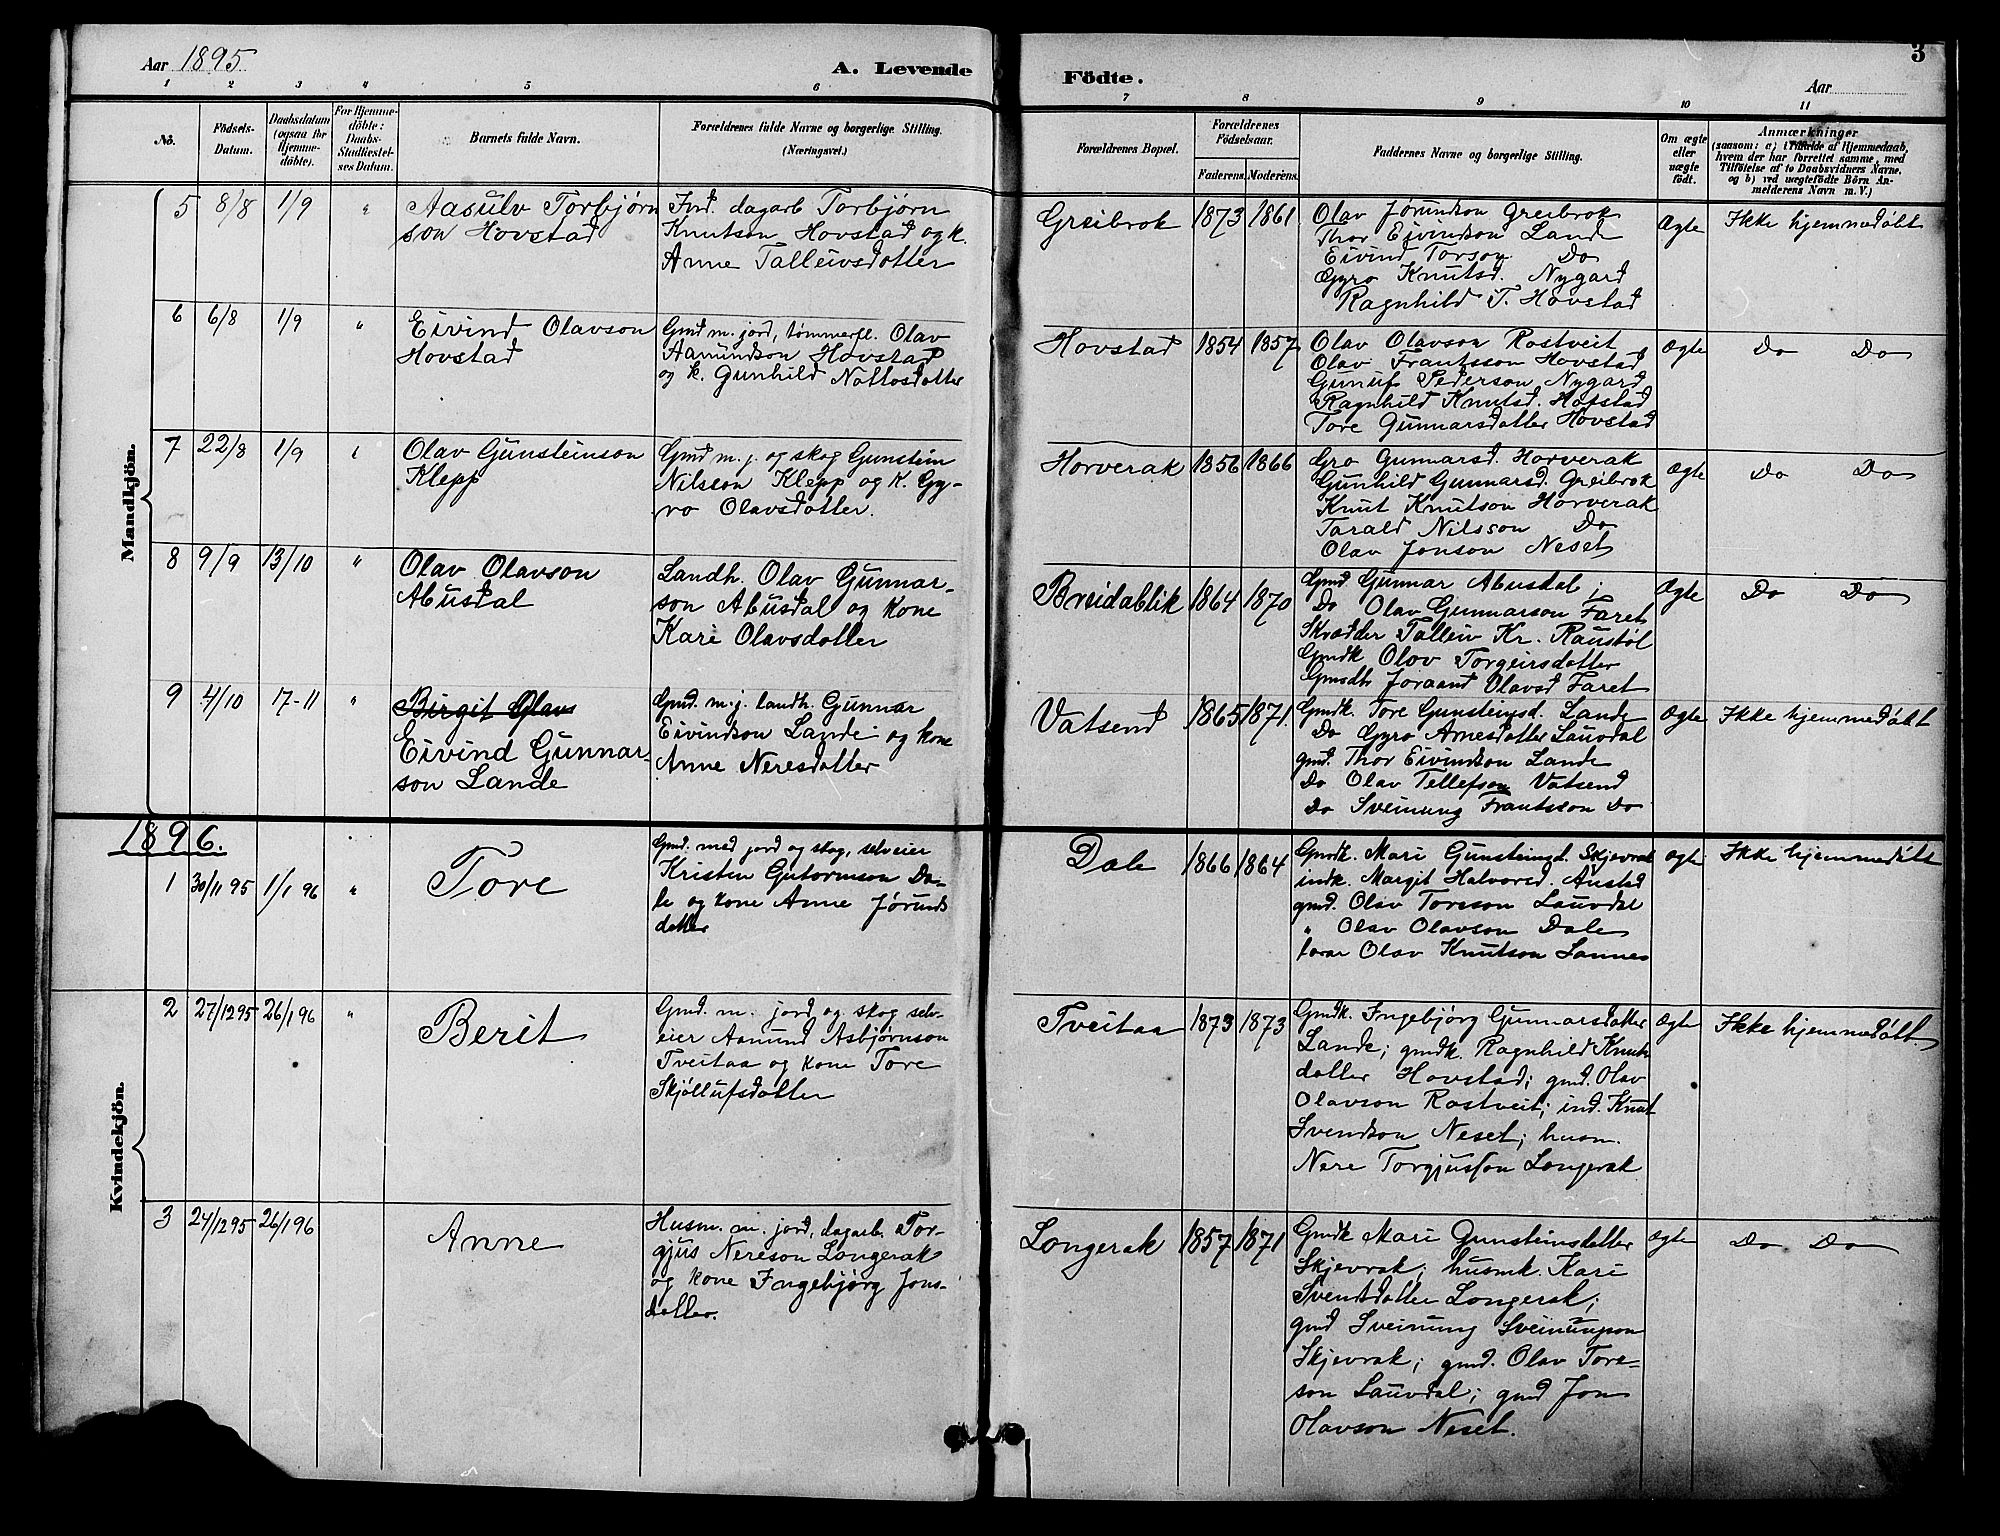 Aar 1895
A. Levende
Födte.
3
Aar
1 2 3 4 5 6 7 8 9 10 11
No.
Födsels-
Datum.
Daabsdatum
(ogsaa for
Hjemme-
döbte).
For Hjemme-
döbte:
Daabs-
Stadfæstel-
ses Datum.
Barnets fulde Navn.
Forældrenes fulde Navne og borgerlige Stilling.
(Næringsvei.)
Forældrenes Bopæl.
Forældrenes
Födselsaar.
Faderens. Moderens.
Faddernes Navne og borgerlige Stilling.
Om ægte
eller
uægte
födt.
Anmærkninger
(saasom: a) i Tilfælde af Hjemmedaab,
hvem der har forrettet samme, med
Tilföielse af to Daabsvidners Navne,
og b) ved uægtefödte Börn An-
melderens Navn m. V.)
Mandkjön.
5 8/8 1/9 "
Aasulv Torbjørn
son Hovstad
Ind. dagarb Torbjørn
Knutson Hovstad og k.
Anne Talleivsdotter
Greibrok 1873 1861
Olav Jørundson Greibrok
Thor Eivindson Lande
Eivind Torson Do
Gyro Knutsd. Nygard
Ragnhild T. Hovstad
Ægte
Ikke hjemmedøbt
6 6/8 1/9 "
Eivind Olavson
Hovstad
Gmd m. jord, tømmerfl. Olav
Aamundson Hovstad
og k. Gunhild Nottosdotter
Hovstad 1854 1857
Olav Olavson Rostveit
Olav Frantsson Hovstad
Gunuf Pederson Nygard
Ragnhild Knutsd. Hofstad
Tore Gunnarsdotter Hovstad
Ægte
Do Do
7 22/8 1/9
Olav Gunsteinson
Klepp
Gmd m. j. og skog Gunstein
Nilsson Klepp og k. Gy-
ro Olavsdotter.
Horverak 1856 1866
Gro Gunnarsd. Horverak
Gunhild Gunnarsd. Greibrok
Knut Knutson Horverak
Tarald Nilsson Do
Olav Jonson Neset
Ægte
Do Do
8 9/9 13/10 "
Olav Olavson
Abusdal
Landh. Olav Gunnar-
son Abusdal og kone
Kari Olavsdotter
Breidablik 1864 1870
Gmd. Gunnar Abusdal;
Do Olav Gunnarson Faret
Skrædder Talleiv Kr. Raustøl
Gmdk Olov Torgeirsdotter
Gmsdtr Joraand Olavsd Faret
Ægte
Do Do
9 4/10 17-11 "
Birgit Olavs
Eivind Gunnar-
son Lande
Gmd. m. j. landh. Gunnar
Eivindson Lande og kone
Anne Neresdotter
Vatsend 1865 1871.
Gmdk. Tore Gunsteinsd. Lande
Do Gyro Arnesdotter Lauvdal
gmd. Thor Eivindson Lande
Do Olav Tellefson Vatsend
Do Sveinung Frantsson Do
Ægte
Ikke hjemmedøbt
1896.
1 30/11 95 1/1 96 "
Tore
Gmd. med jord og skog, selveier
Kristen Gutormson Da-
le og kone Anne Jørunds
dotter
Dale 1866 1864
Gmdk. Mari Gunsteinsd. Skjevrak
indk. Margit Halvorsd. Austad
gmd. Olav Toreson Lauvdal
" Olav Olavson Dale
Olav Knutson Lannes
Ægte
Ikke hjemmedøbt
Kvindekjön.
2 27/12 95 26/1 96 "
Berit
Gmd. m. jord og skog selv-
eier Aamund Asbjørnson
Tveitaa og kone Tore
Skjøllufsdotter
Tveitaa 1873 1873
Gmdk. Ingebjørg Gunnarsdotter
Lande; gmdk. Ragnhild Knuts
dotter Hovstad; gmd. Olav
Olavson Rostveit; ind. Knut
Svendson Neset; husm.
Nere Torgjusson Longerak
Ægte
Ikke hjemmedøbt.
3 27/12 95 26/1 96
Anne
Husm. m. jord, dagarb. Tor-
gjus Nereson Longerak
og kone Ingebjørg Jons-
dotter.
Longerak 1857 1871
Gmdk Mari Gunsteinsdotter
Skjevrak; husmk. Kari
Svensdotter Longerak;
gmd Sveinung Sveinungson
Skjevrak; gmd. Olav Tore-
son Lauvdal; gmd Jon
Olavson Neset.
Ægte
Do Do